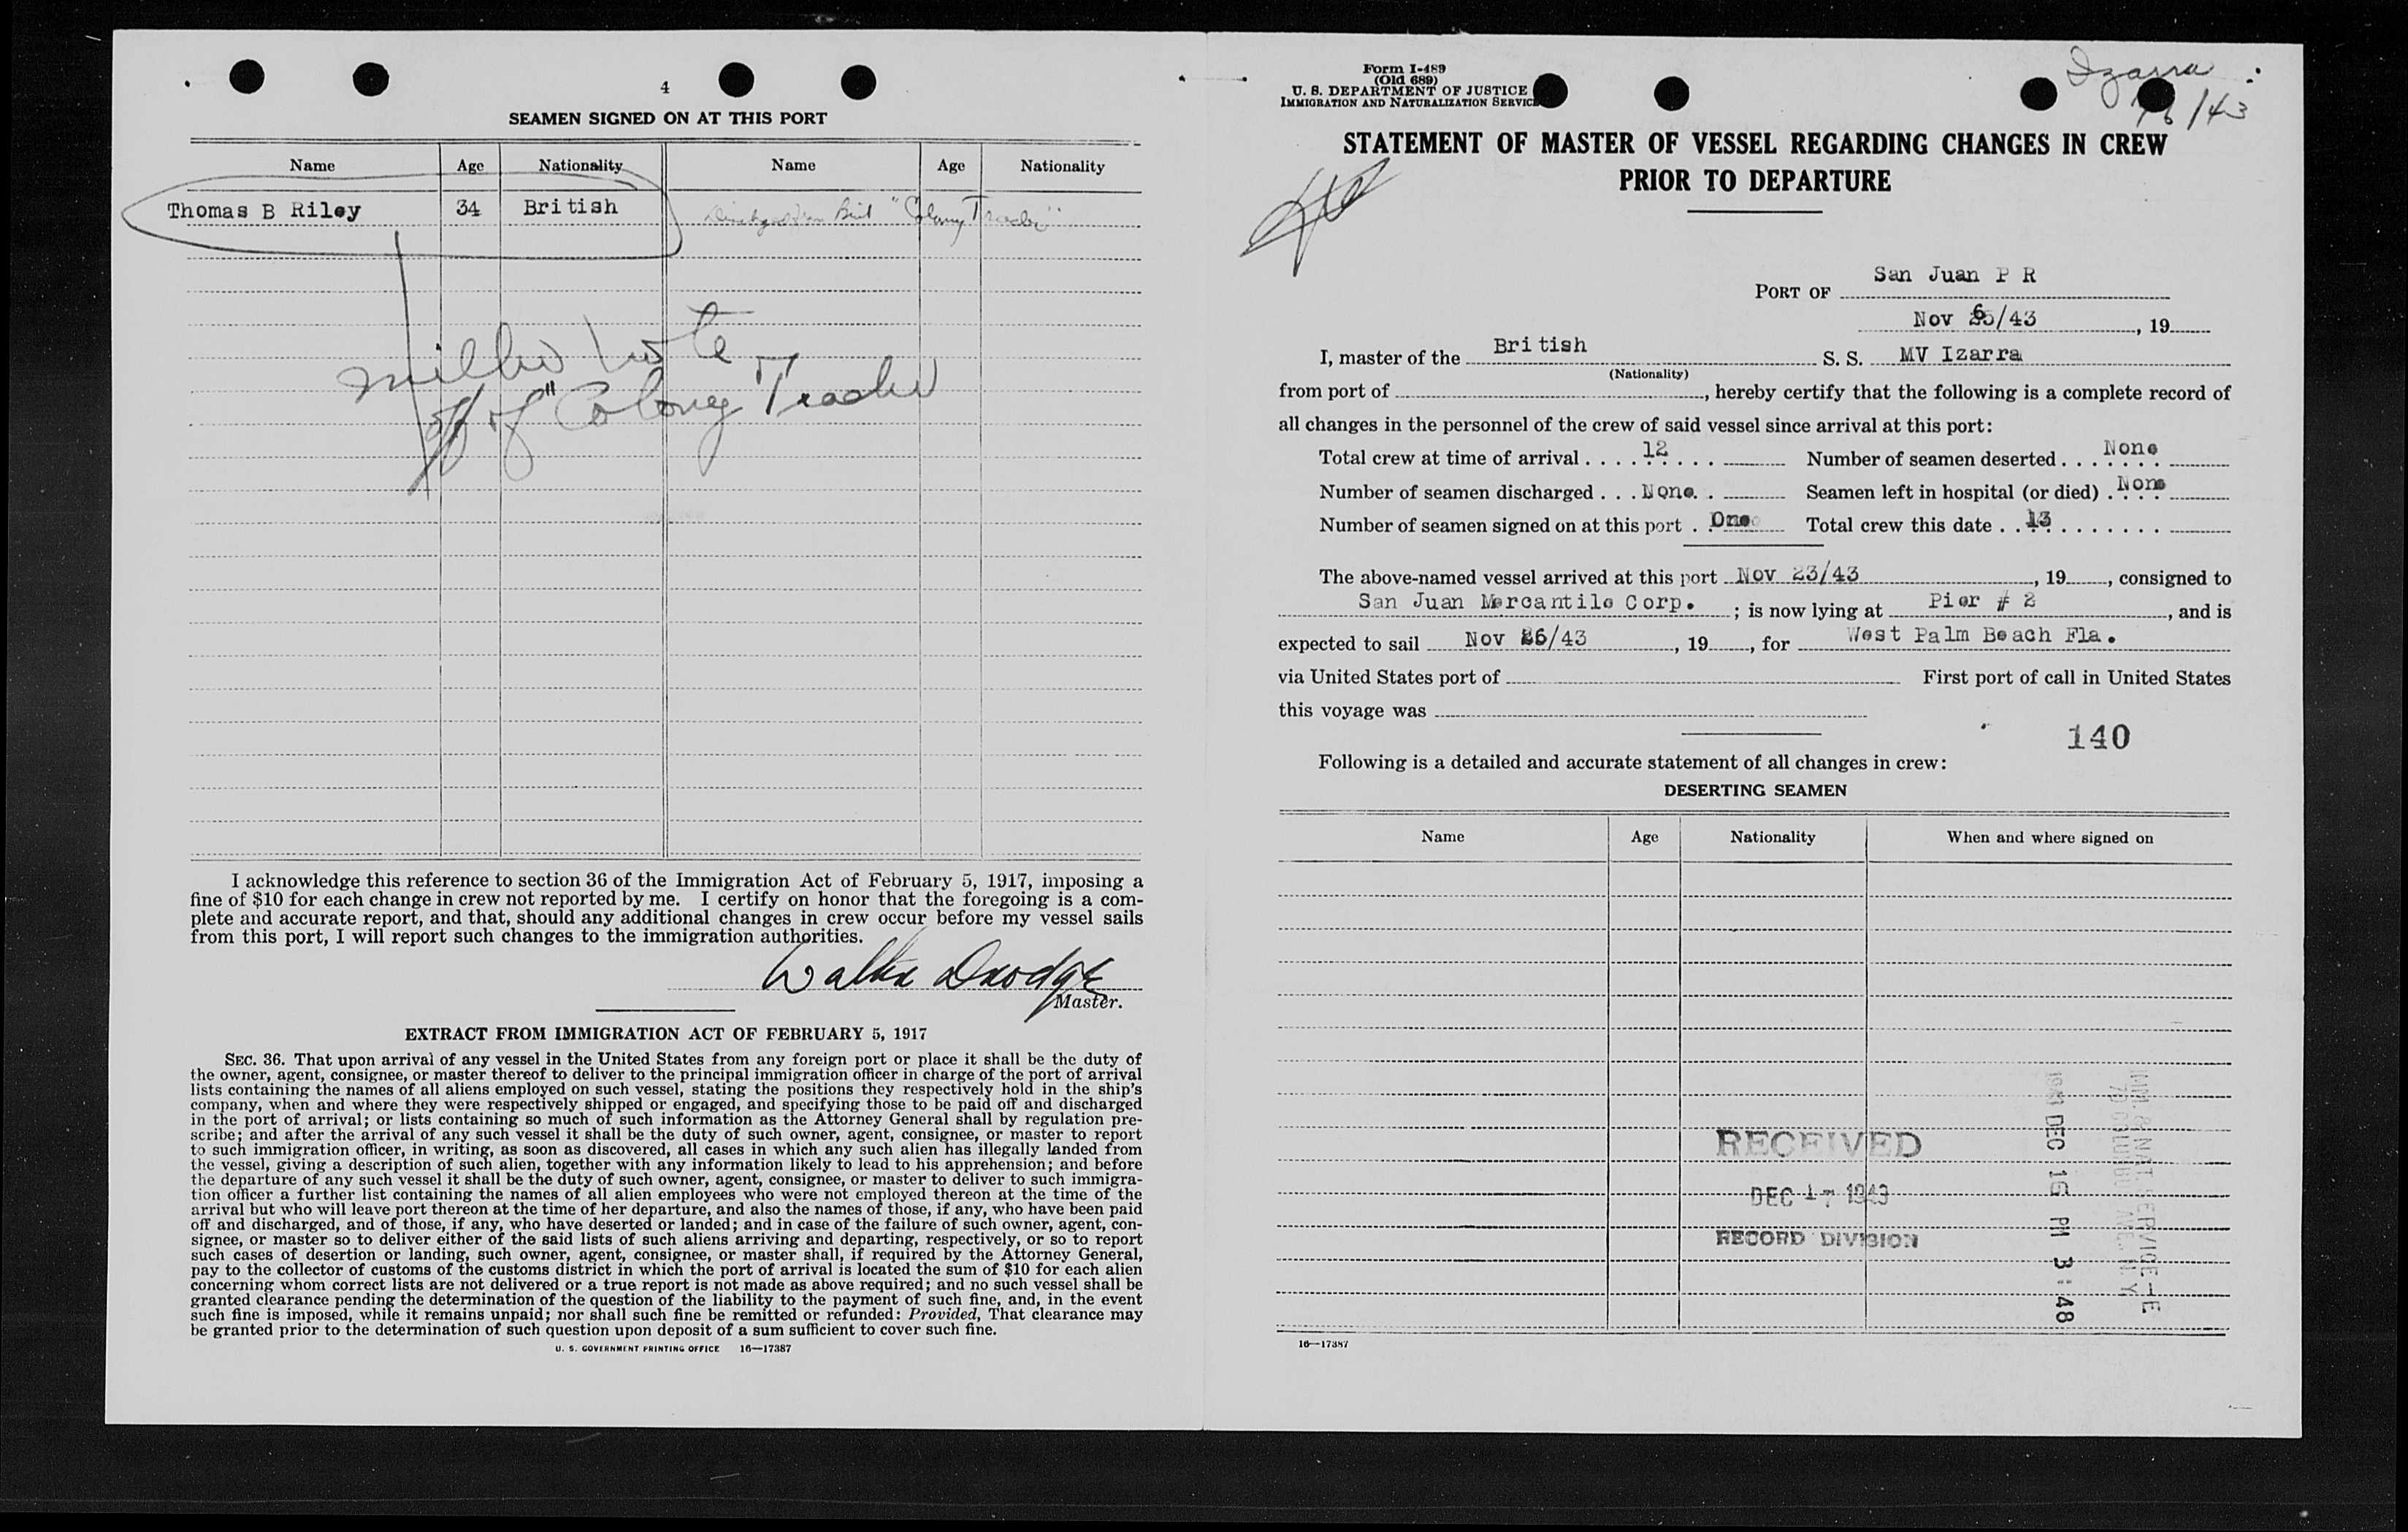 4
SEAMEN SIGNED ON AT THIS PORT
Name Age Nationality Name Age Nationality
Thomas B Riley 34 British "Colony Trader"
"Colony Trader
I acknowledge this reference to section 36 of the Immigration Act of February 5, 1917, imposing a
fine of $10 for each change in crew not reported by me. I certify on honor that the foregoing is a com-
plete and accurate report, and that, should any additional changes in crew occur before my vessel sails
from this port, I will report such changes to the immigration authorities.
Walter Drodge
Master.
EXTRACT FROM IMMIGRATION ACT OF FEBRUARY 5, 1917
SEC. 36. That upon arrival of any vessel in the United States from any foreign port or place it shall be the duty of
the owner, agent, consignee, or master thereof to deliver to the principal immigration officer in charge of the port of arrival
lists containing the names of all aliens employed on such vessel, stating the positions they respectively hold in the ship's
company, when and where they were respectively shipped or engaged, and specifying those to be paid off and discharged
in the port of arrival; or lists containing so much of such information as the Attorney General shall by regulation pre-
scribe; and after the arrival of any such vessel it shall be the duty of such owner, agent, consignee, or master to report
to such immigration officer, in writing, as soon as discovered, all cases in which any such alien has illegally landed from
the vessel, giving a description of such alien, together with any information likely to lead to his apprehension; and before
the departure of any such vessel it shall be the duty of such owner, agent, consignee, or master to deliver to such immigra-
tion officer a further list containing the names of all alien employees who were not employed thereon at the time of the
arrival but who will leave port thereon at the time of her departure, and also the names of those, if any, who have been paid
off and discharged, and of those, if any, who have deserted or landed; and in case of the failure of such owner, agent, con-
signee, or master so to deliver either of the said lists of such aliens arriving and departing, respectively, or so to report
such cases of desertion or landing, such owner, agent, consignee, or master shall, if required by the Attorney General,
pay to the collector of customs of the customs district in which the port of arrival is located the sum of $10 for each alien
concerning whom correct lists are not delivered or a true report is not made as above required; and no such vessel shall be
granted clearance pending the determination of the question of the liability to the payment of such fine, and, in the event
such fine is imposed, while it remains unpaid; nor shall such fine be remitted or refunded: Provided, That clearance may
be granted prior to the determination of such question upon deposit of a sum sufficient to cover such fine.
U. S. GOVERNMENT PRINTING OFFICE 16—17387
Form I-489
(Old 689)
U. S. DEPARTMENT OF JUSTICE
IMMIGRATION AND NATURALIZATION SERVICE
Izarra
/43
STATEMENT OF MASTER OF VESSEL REGARDING CHANGES IN CREW
PRIOR TO DEPARTURE
PORT OF San Juan P R
Nov 26/43, 19
I, master of the British S. S. MV Izarra
(Nationality)
from port of , hereby certify that the following is a complete record of
all changes in the personnel of the crew of said vessel since arrival at this port:
Total crew at time of arrival . . . . 12 . . . . Number of seamen deserted . . . . None
Number of seamen discharged . . . None. . Seamen left in hospital (or died) . None
Number of seamen signed on at this port . One Total crew this date . . 13 . . . . . . . .
The above-named vessel arrived at this port Nov 23/43, 19, consigned to
San Juan Mercantile Corp. ; is now lying at Pier # 2, and is
expected to sail Nov 26/43, 19, for West Palm Beach Fla.
via United States port of First port of call in United States
this voyage was
140
Following is a detailed and accurate statement of all changes in crew:
DESERTING SEAMEN
Name Age Nationality When and where signed on
RECEIVED
DEC 17 1943
RECORD DIVISION
1943 DEC 16 PM 3:48
IMMI. & NAT. SERVICE—E
70 COLUMBUS AVE. N.Y.
16—17387